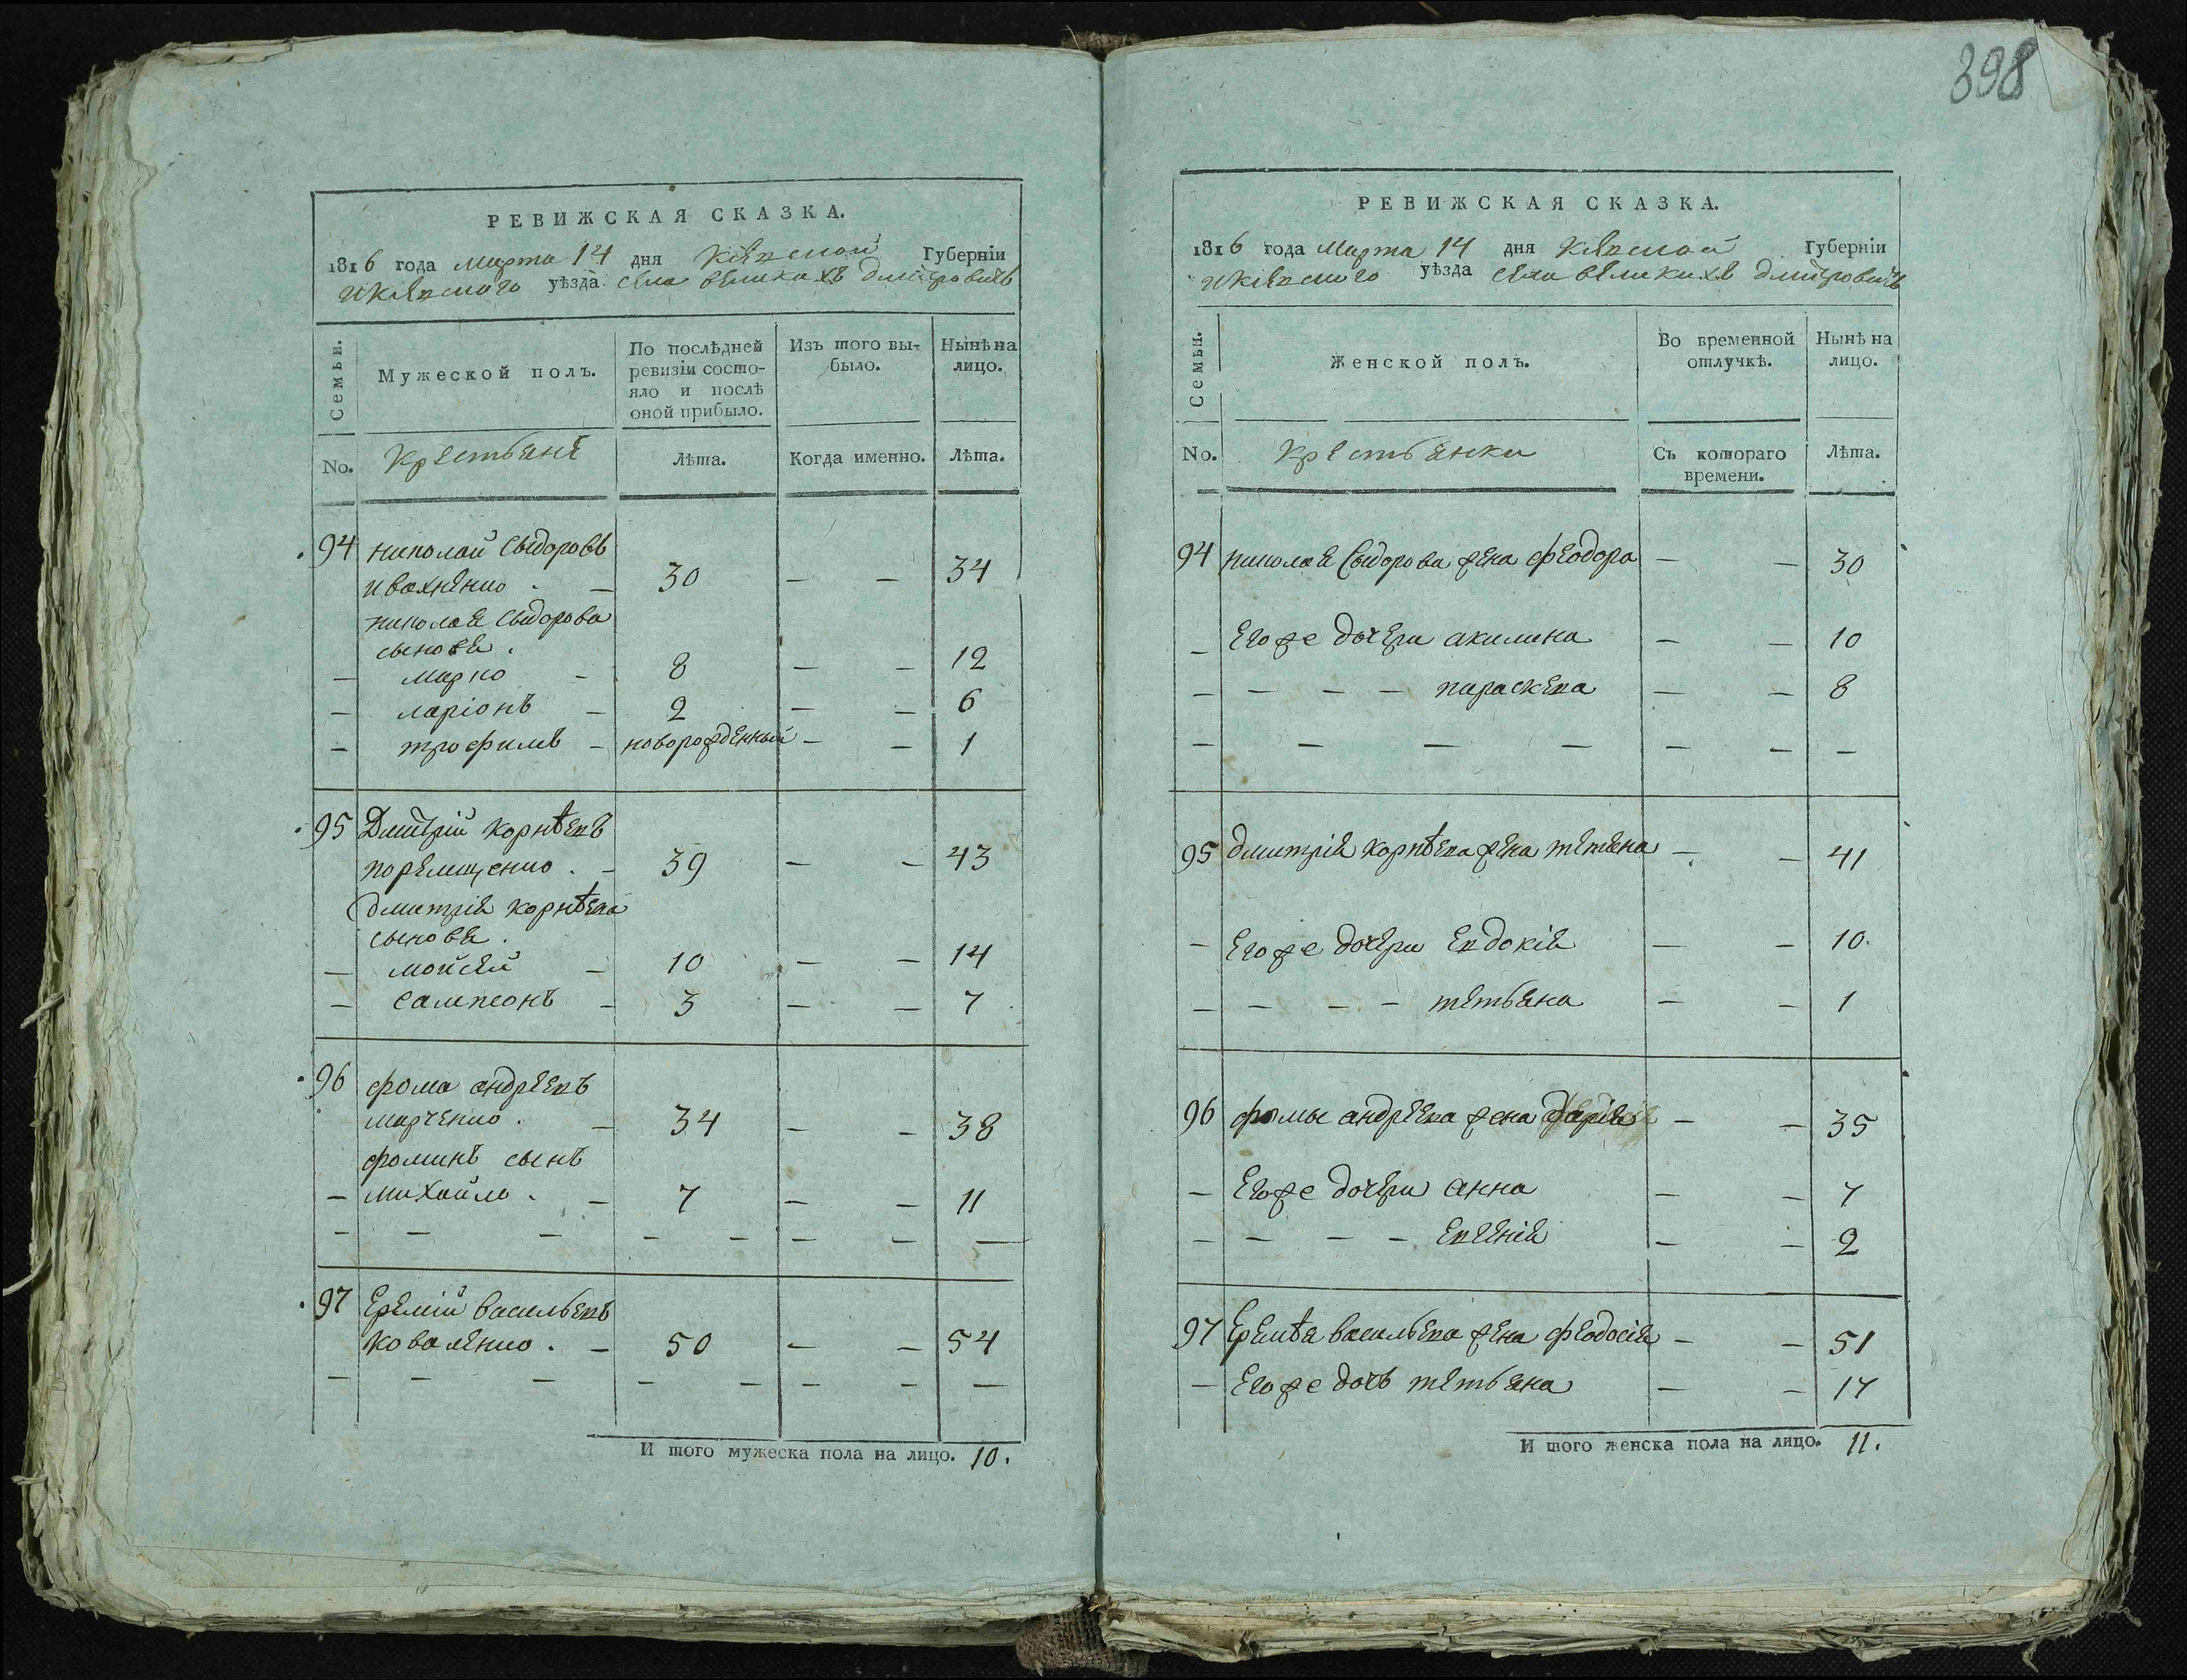 398
РЕВИЖСКАЯ СКАЗКА.
1816 года Марта 14 дня Кіевской Губерніи
и Кіевского уѣзда села великихъ дмитровичъ
Семьи.
Мужеской полъ.
По послѣдней ревизіи состояло и послѣ оной прибыло.
Изъ того выбыло.
Нынѣ на лицо.
No.
Крестьяне
Лѣта.
Когда именно.
Лѣта.
94 николай Сыдоровъ
ивахненко . — 30 — — 34
николая Сыдорова
сыновя .
— марко — 8 — — 12
— ларіонъ — 2 — — 6
— трофимъ — новорожденный — — 1
95 Дмитрій корнѣевъ
. — 39 — — 43
дмитрія корнѣева
сыновя .
— мойсей — 10 — — 14
— сампсонъ — 3 — — 7
96 фома андреевъ
марченко . — 34 — — 38
фоминъ сынъ
— михайло . — 7 — — 11
— — — — — — — —
97 Еремій васильевъ
коваленко . — 50 — — 54
— — — — — — — —
И того мужеска пола на лицо. 10.
РЕВИЖСКАЯ СКАЗКА.
1816 года Марта 14 дня Кіевской Губерніи
и Кіевского уѣзда села великихъ дмитровичъ
Семьи.
Женской полъ.
Во временной отлучкѣ.
Нынѣ на лицо.
No.
Крестьянки
Съ котораго времени.
Лѣта.
94 николая Сыдорова жена феодора — — 30
— Егоже дочери акилина — — 10
— — — — параскева — — 8
— — — — — — —
95 дмитрія корнѣева жена тетяна — — 41
— Егоже дочери Евдокія — — 10.
— — — — тетьяна — — 1
96 фомы андреева жена — — 35
— Егоже дочери анна — — 7
— — — — Евгенія — — 2
97 Еремѣя васильева жена феодосія — — 51
— Егоже дочь тетьяна — — 17
И того женска пола на лицо. 11.